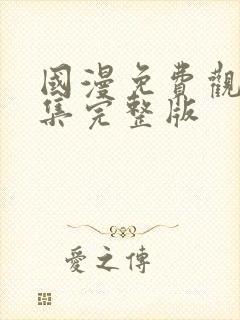 國漫免費觀
集完整版
愛之傳